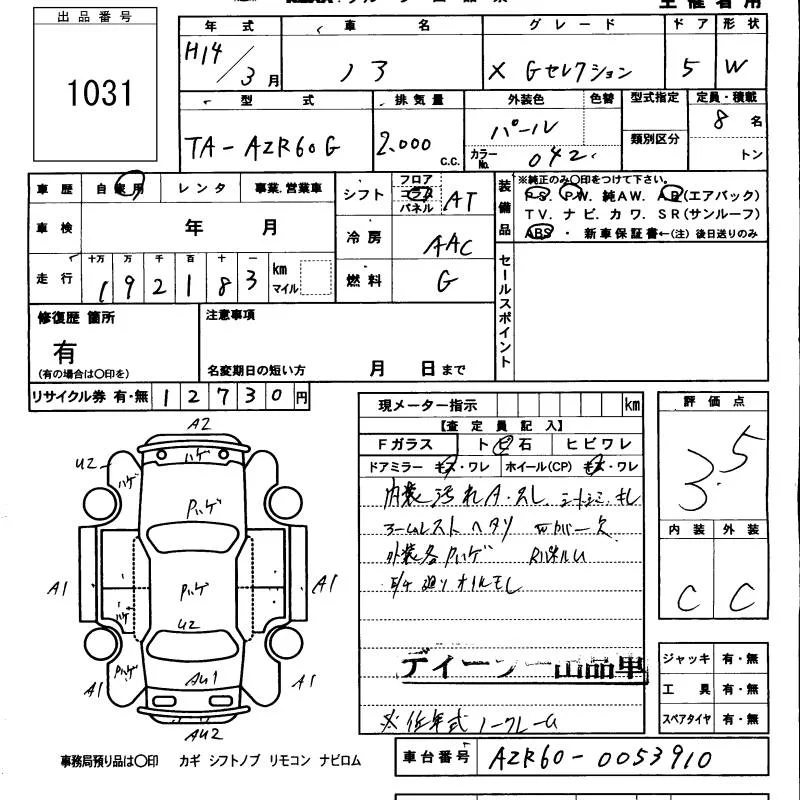 出品番号
1031
主催者用
年式 車名 グレード ドア 形状
H14/3月 ノア X Gセレクション 5 W
型式 排気量 外装色 色替 型式指定 定員・積載
TA-AZR60G 2,000 C.C. パール 類別区分 8名
カラーNo. 042 トン
車歴 自家用 レンタ 事業.営業車
車検 年 月
走行 十万 万 千 百 十 一
192183 km マイル
シフト フロア コラム パネル AT
冷房 AAC
燃料 G
装備品
※純正のみ○印をつけて下さい。
PS. PW. 純AW. AB(エアバック)
TV. ナビ. カワ. SR(サンルーフ)
ABS ・ 新車保証書←(注)後日送りのみ
セールスポイント
修復歴 箇所
有
(有の場合は○印を)
注意事項
名変期日の短い方 月 日まで
リサイクル券 有・無 12730円
現メーター指示 km
【査定員記入】
Fガラス トビ石 ヒビワレ
ドアミラー キズ・ワレ ホイール(CP) キズ・ワレ
内装汚れ
アームレスト ヘタリ
外装各Pハゲ
※低年式 ノークレーム
評価点
3.5
内装 外装
C C
ジャッキ 有・無
工具 有・無
スペアタイヤ 有・無
A2
U2
ハゲ
ハゲ
Pハゲ
A1
Pハゲ
A1
ハゲ
U2
Pハゲ
AU1
A1
A1
AU2
事務局預り品は○印 カギ シフトノブ リモコン ナビロム
車台番号 AZR60-0053910